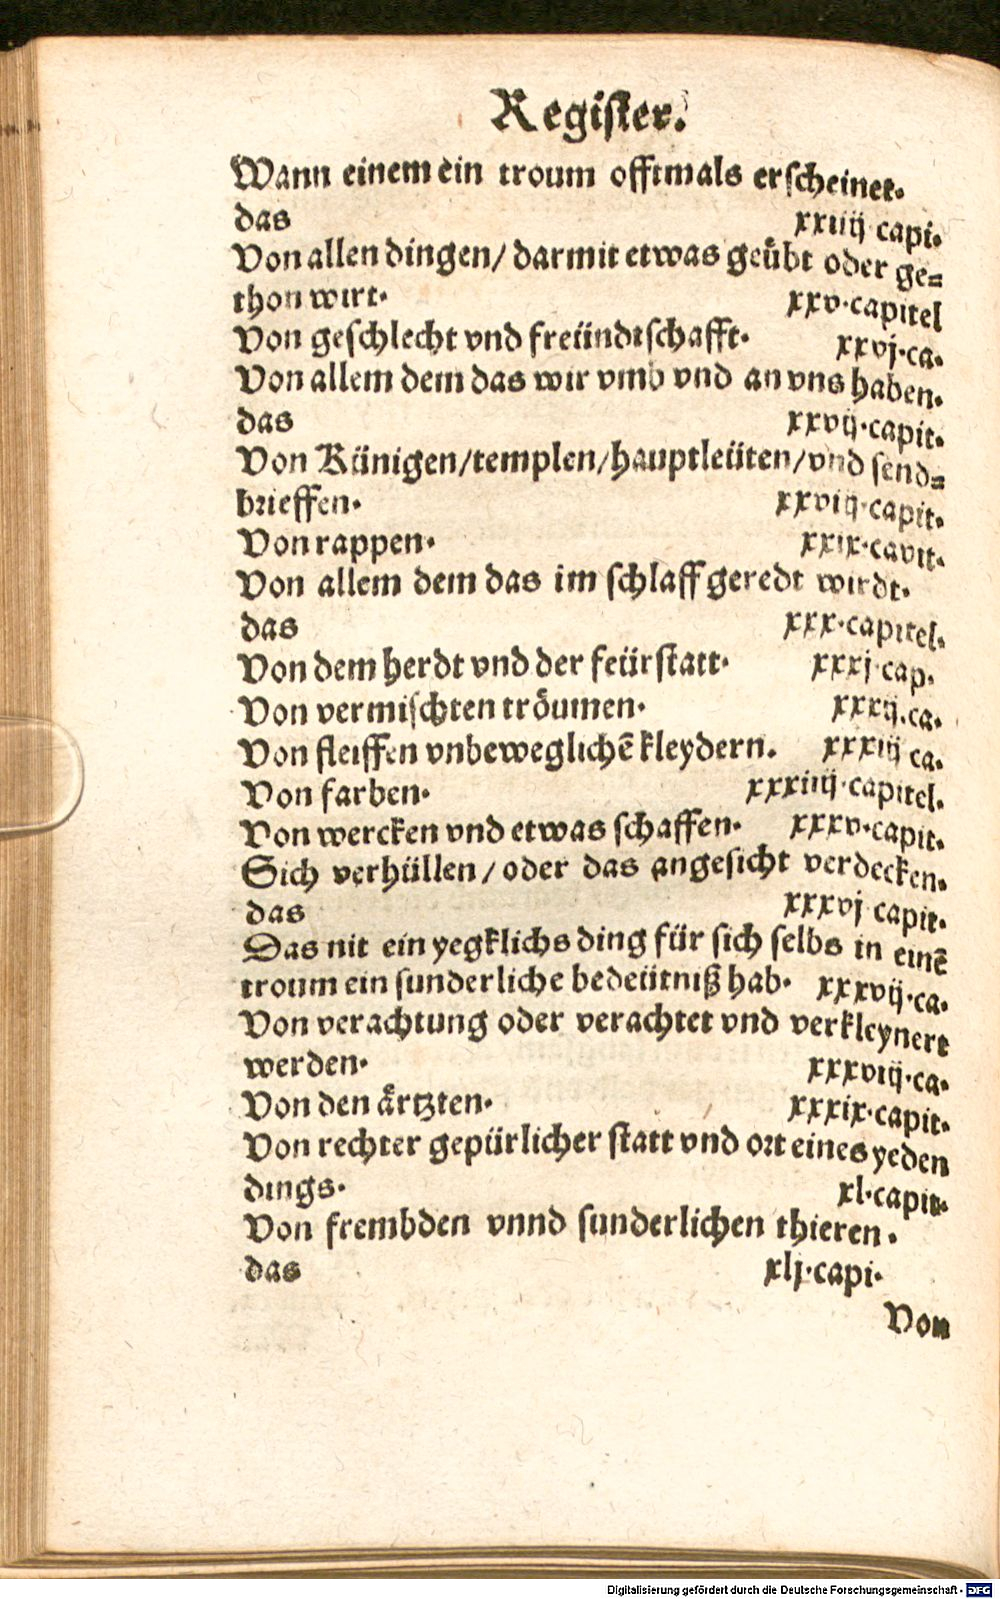 Register.
Wann einem ein troum offtmals erscheinet.
das xxiiij capi.
Von allen dingen/ darmit etwas geübt oder ge=
thon wirt. xxv.capitel
Von geschlecht vnd freündtschafft. xxvj.ca.
Von allem dem das wir vmb vnd an vns haben.
das xxvij.capit.
Von Künigen/templen/hauptleüten/vnd send=
brieffen. xxviij.capit.
Von rappen. xxix.capit.
Von allem dem das im schlaff geredt wirdt.
das xxx.capitel.
Von dem herdt vnd der feürstatt. xxxj cap.
Von vermischten tröumen. xxxij.ca.
Von fleiffen vnbeweglichē kleydern. xxxiij ca.
Von farben. xxxiiij.capitel.
Von wercken vnd etwas schaffen. xxxv.capit.
Sich verhüllen/oder das angesicht verdecken.
das xxxvj capit.
Das nit ein yegklichs ding für sich selbs in einē
troum ein sunderliche bedeütniß hab. xxxvij.ca.
Von verachtung oder verachtet vnd verkleynert
werden. xxxviij.ca.
Von den ärtzten. xxxix.capit.
Von rechter gepürlicher statt vnd ort eines yeden
dings. xl.capit.
Von frembden vnnd sunderlichen thieren.
das xlj.capi.
Von
Digitalisierung gefördert durch die Deutsche Forschungsgemeinschaft - DFG